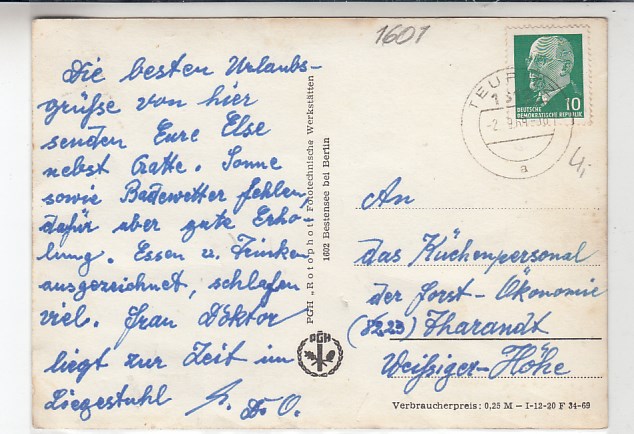 1601
Die besten Urlaubs-
grüße von hier
senden Eure Else
nebst Gatte. Sonne
sowie Badewetter fehlen,
dafür aber gute Erho-
lung. Essen u. Trinken
ausgezeichnet, schlafen
viel. Frau Doktor
liegt zur Zeit im
Liegestuhl
D. O.
PGH „Rotophot" Fototechnische Werkstätten
1602 Bestensee bei Berlin
PGH
TEUP
10
DEUTSCHE
DEMOKRATISCHE REPUBLIK
a
An
das Küchenpersonal
der Forst-Ökonomie
(8223) Tharandt
Weißiger-Höhe
Verbraucherpreis: 0,25 M – I-12-20 F 34-69